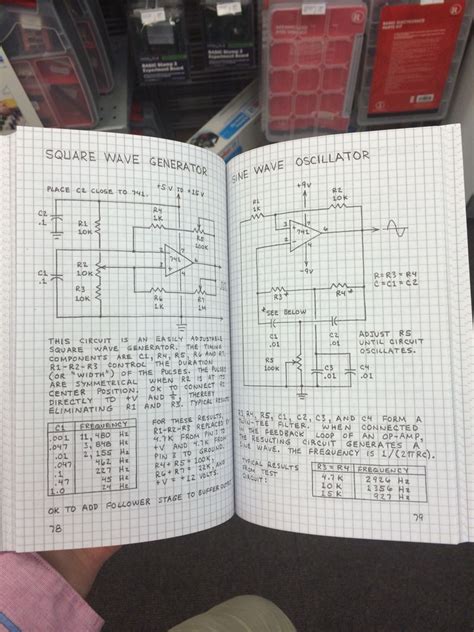 BASIC Stamp 2
Experiment Board
BASIC Stamp 2
Experiment Board
SQUARE WAVE GENERATOR
PLACE C2 CLOSE TO 741.
+5V TO +15V
C2
.1
R1
10K
R4
1K
R5
100K
R2
10K
2
3
7
741
4
6
C1
.1
R3
10K
R6
1K
R7
1M
THIS CIRCUIT IS AN EASILY ADJUSTABLE
SQUARE WAVE GENERATOR. THE TIMING
COMPONENTS ARE C1, R4, R5, R6 AND R7.
R1-R2-R3 CONTROL THE DURATION
(OR "WIDTH") OF THE PULSES. THE PULSES
ARE SYMMETRICAL WHEN R2 IS AT ITS
CENTER POSITION. OK TO CONNECT R2
DIRECTLY TO +V AND, THEREBY
ELIMINATING R1 AND R3. TYPICAL
C1 FREQUENCY
.001 11,480 HZ
.047 3,848 HZ
.01 2,155 HZ
.047 462 HZ
.1 227 HZ
.47 45 HZ
1.0 24 HZ
FOR THESE RESULTS,
R1-R2-R3 REPLACED BY
4.7K FROM PIN 3 TO
+V AND 4.7K FROM
PIN 3 TO GROUND.
R4 + R5 = 100K,
R6 + R7 = 22K, AND
+V = +12 VOLTS.
OK TO ADD FOLLOWER STAGE TO BUFFER
78
SINE WAVE OSCILLATOR
+9V
R1
1K
R2
10K
2
3
7
741
4
6
-9V
R3*
R4*
R=R3=R4
C=C1=C2
*SEE BELOW
C1
.01
C2
.01
ADJUST R5
UNTIL CIRCUIT
OSCILLATES.
R5
100K
C3
.01
C4
.01
R4, R5, C1, C2, C3, AND C4 FORM A
FILTER. WHEN CONNECTED
IN THE FEEDBACK LOOP OF AN OP-AMP,
THE RESULTING CIRCUIT GENERATES A
SINE WAVE. THE FREQUENCY IS 1/(2πRC).
TYPICAL RESULTS
FROM TEST
CIRCUIT:
R3=R4 FREQUENCY
4.7K 2926 HZ
10K 1356 HZ
15K 927 HZ
79